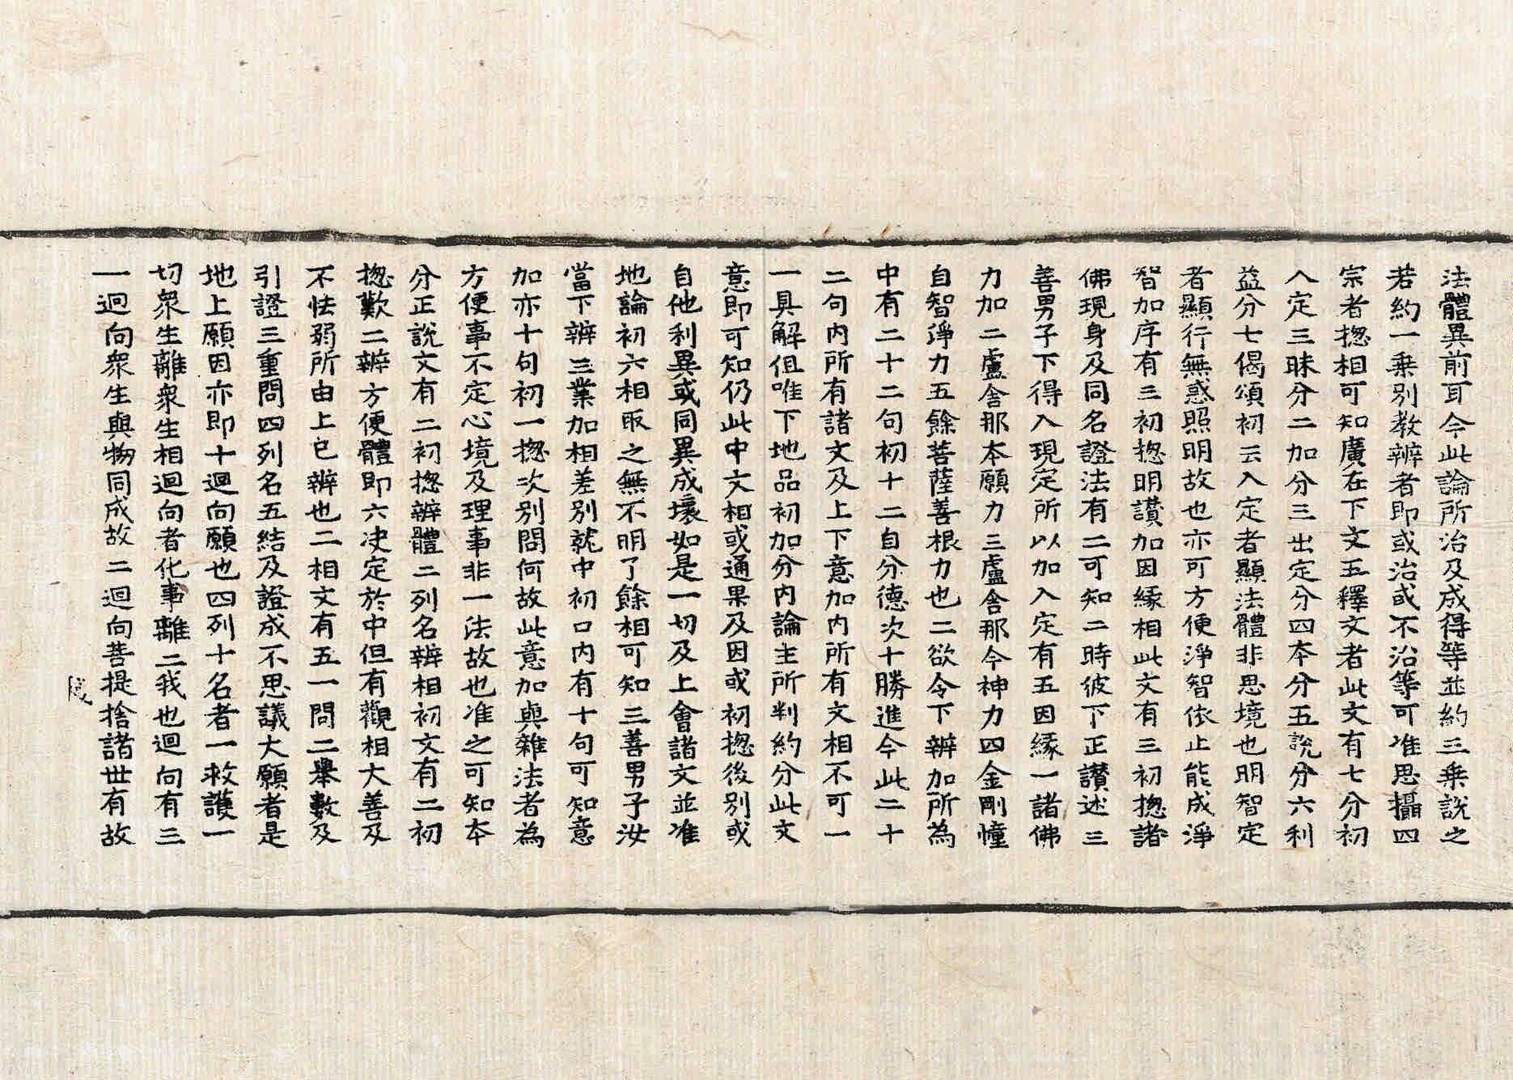 法體異前耳今此論所治及成得等並約三乗說之
若約一乗別教辨者即或治或不治等可准思攝四
宗者揔相可知廣在下文五釋文者此文有七分初
入定三昧分二加分三出定分四本分五說分六利
益分七偈頌初云入定者顯法體非思境也明智定
者顯行無惑照明故也亦可方便淨智依止能成淨
智加序有三初揔明讚加因緣相此文有三初揔諸
佛現身及同名證法有二可知二時彼下正讚述三
善男子下得入現定所以加入定有五因緣一諸佛
力加二盧舍那本願力三盧舍那今神力四金剛憧
自智淨力五餘菩薩善根力也二欲令下辨加所為
中有二十二句初十二自分德次十勝進今此二十
二句內所有諸文及上下意加內所有文相不可一
一具解但唯下地品初加分內論主所判約分此文
意即可知仍此中文相或通果及因或初揔後別或
自他利異或同異成壞如是一切及上會諸文並准
地論初六相取之無不明了餘相可知三善男子汝
當下辨三業加相差別就中初口內有十句可知意
加亦十句初一揔次別問何故此意加與雜法者為
方便事不定心境及理事非一法故也准之可知本
分正說文有二初揔辨體二列名辨相初文有二初
揔歎二辨方便體即六决定於中但有觀相大善及
不怯弱所由上已辨也二相文有五一問二舉數及
引證三重問四列名五結及證成不思議大願者是
地上願因亦即十迴向願也四列十名者一救護一
切衆生離衆生相迴向者化事離二我也迴向有三
一迴向衆生與物同成故二迴向菩提捨諸世有故